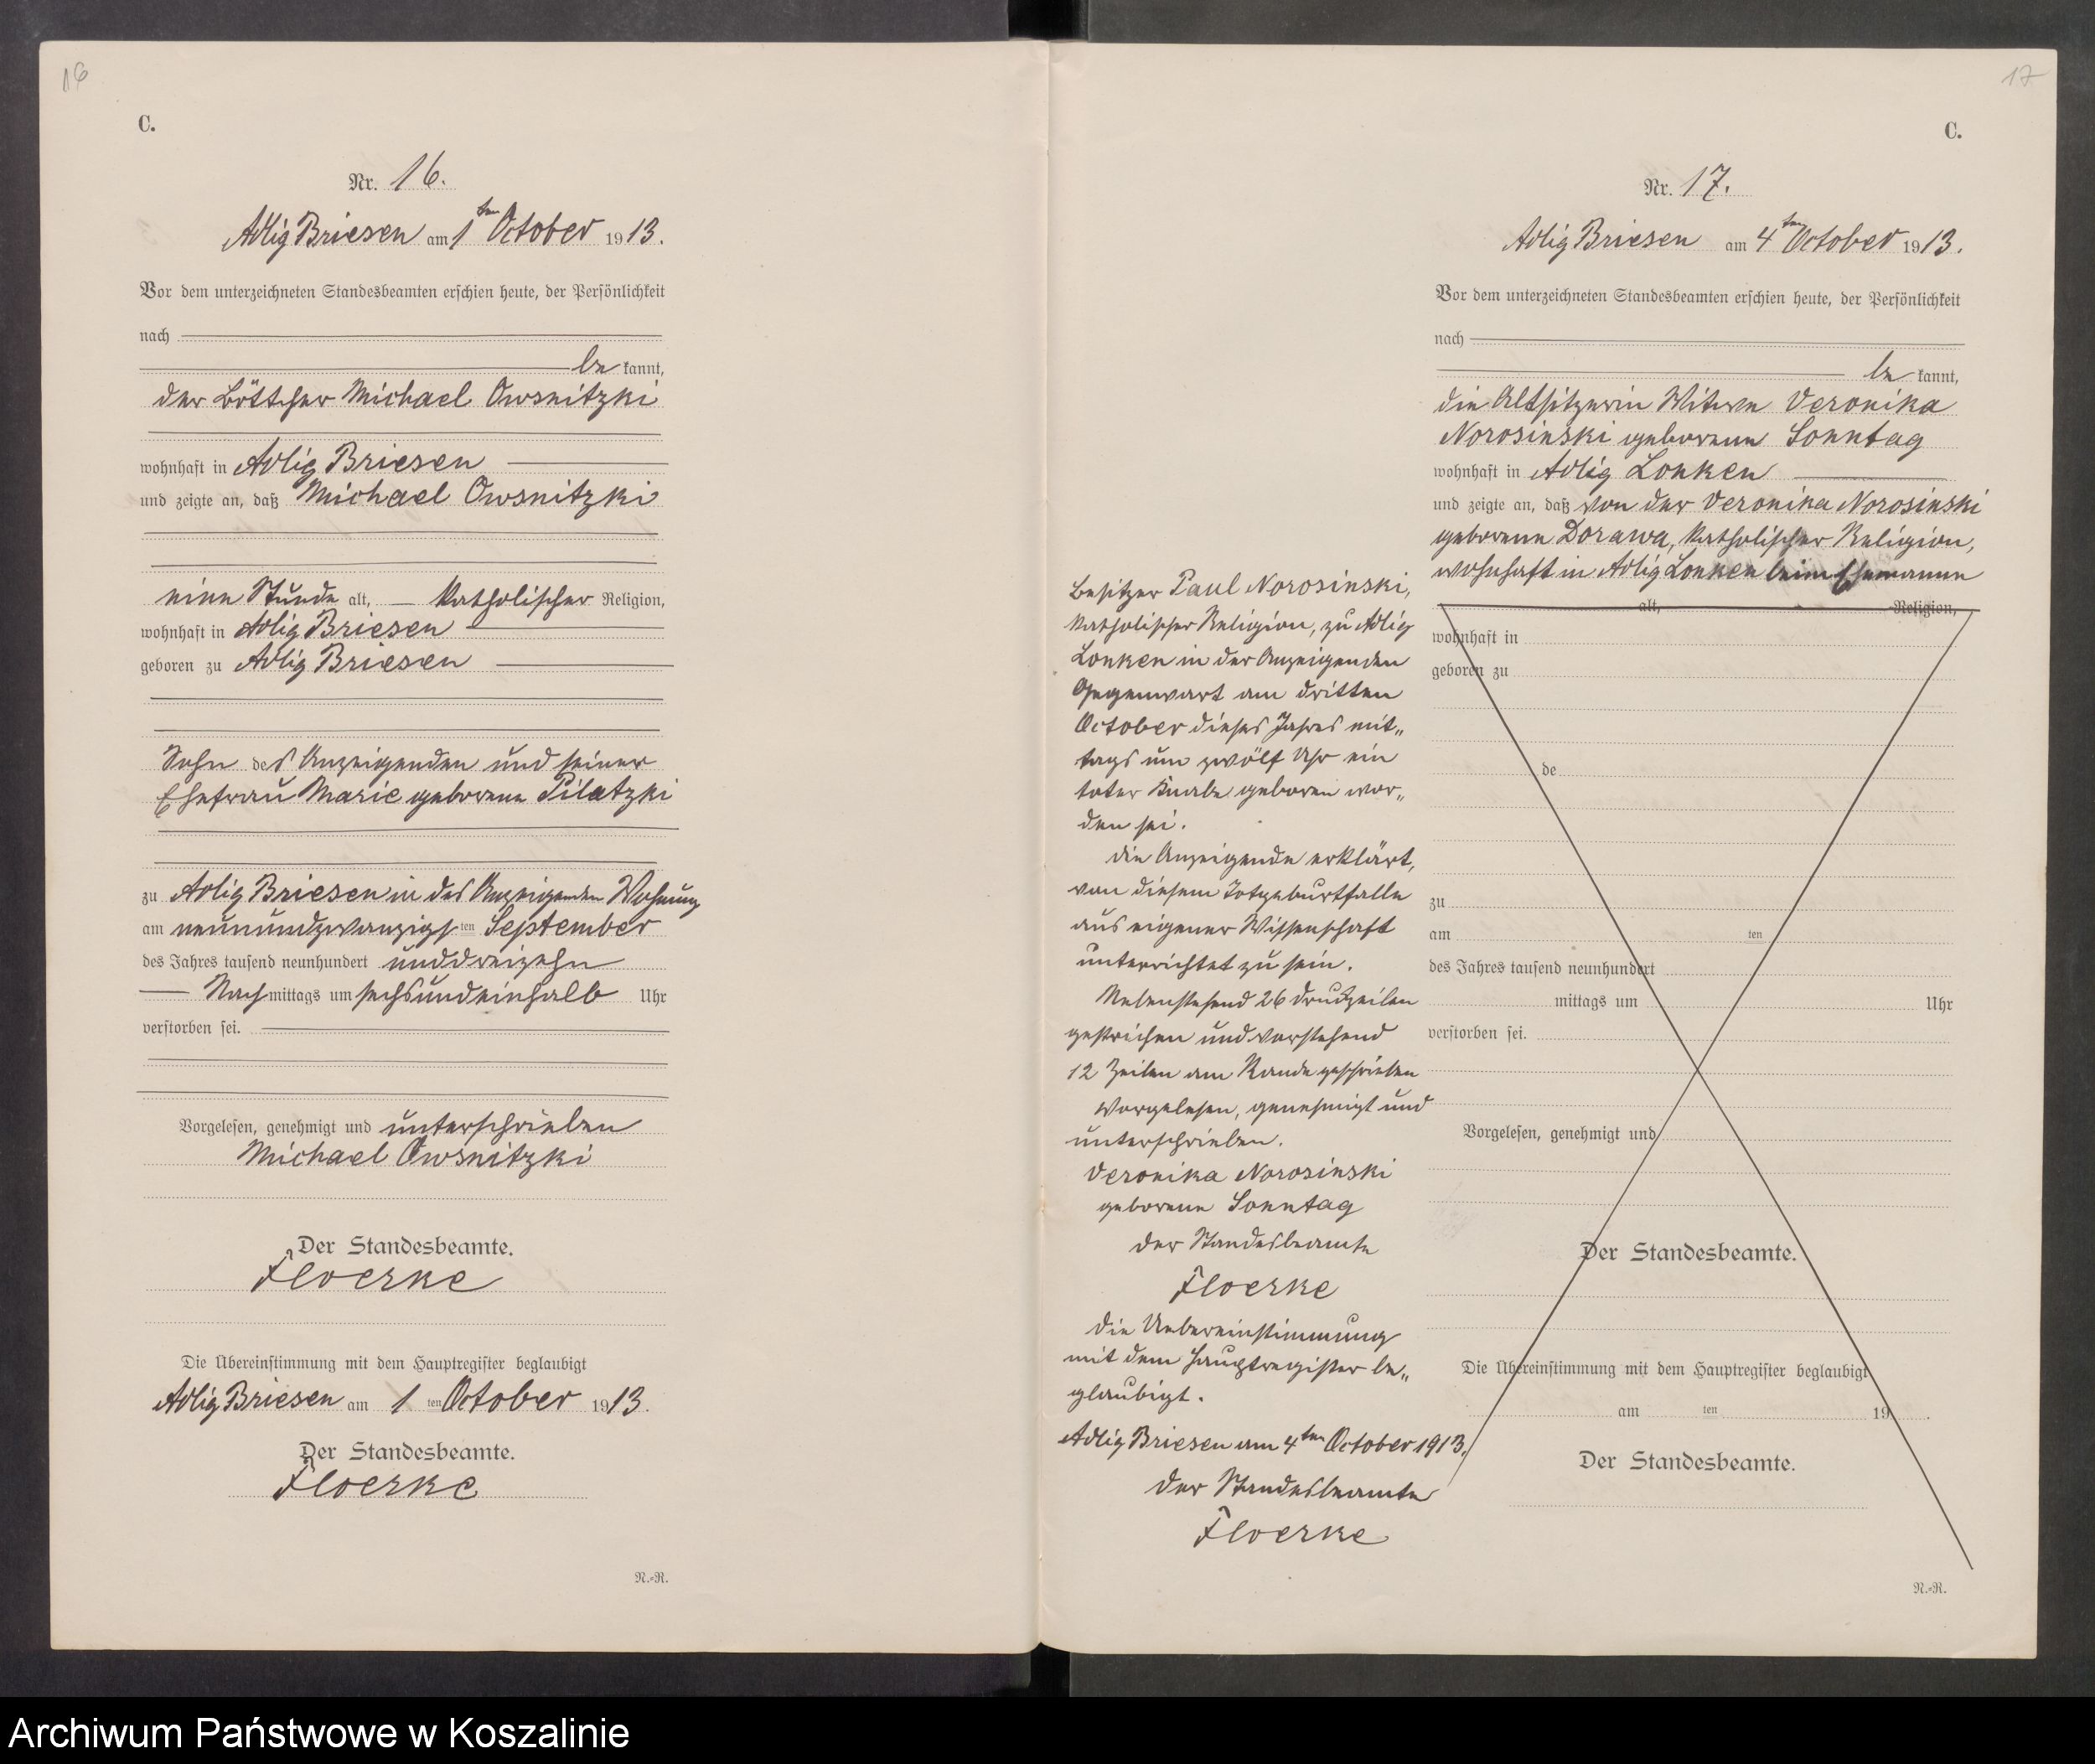 16
C.
Nr. 16.
Adlig Briesen am 1ten October 1913.
Vor dem unterzeichneten Standesbeamten erschien heute, der Persönlichkeit
nach
be kannt,
der Böttcher Michael Owsnitzki
wohnhaft in Adlig Briesen
und zeigte an, daß Michael Owsnitzki
eine Stunde alt, katholischer Religion,
wohnhaft in Adlig Briesen
geboren zu Adlig Briesen
Sohn des Anzeigenden und seiner
Ehefrau Marie geborene Pilatzki
zu Adlig Briesen in des Anzeigenden Wohnung
am neunundzwanzigsten September
des Jahres tausend neunhundert unddreizehn
Nachmittags um sechsundeinhalb Uhr
verstorben sei.
Vorgelesen, genehmigt und unterschrieben
Michael Owsnitzki
Der Standesbeamte.
Floerke
Die Übereinstimmung mit dem Hauptregister beglaubigt
Adlig Briesen am 1 ten October 1913.
Der Standesbeamte.
Floerke
N.=R.
17
C.
Nr. 17.
Adlig Briesen am 4ten October 1913.
Vor dem unterzeichneten Standesbeamten erschien heute, der Persönlichkeit
nach
be kannt,
die Altsitzerin Witwe Veronika
Norosinski geborene Sonntag
wohnhaft in Adlig Lonken
und zeigte an, daß von der Veronika Norosinski
geborene Dorawa, katholischer Religion,
wohnhaft in Adlig Lonken beim Ehemanne
Besitzer Paul Norosinski,
katholischer Religion, zu Adlig
Lonken in der Anzeigenden
Gegenwart am dritten
October dieses Jahres mit„
tags um zwölf Uhr ein
toter Knabe geboren wor„
den sei.
Die Anzeigende erklärt,
von diesem Totgeburtfalle
aus eigener Wissenschaft
unterrichtet zu sein.
Nebenstehend 26 Druckzeilen
gestrichen und vorstehend
12 Zeilen am Rande geschrieben
Vorgelesen, genehmigt und
unterschrieben.
Veronika Norosinski
geborene Sonntag
Der Standesbeamte
Floerke
Die Uebereinstimmung
mit dem Hauptregister be„
glaubigt.
Adlig Briesen am 4ten October 1913.
Der Standesbeamte
Floerke
alt, Religion,
wohnhaft in
geboren zu
de
zu
am ten
des Jahres tausend neunhundert
mittags um Uhr
verstorben sei.
Vorgelesen, genehmigt und
Der Standesbeamte.
Die Übereinstimmung mit dem Hauptregister beglaubigt
am ten 19 .
Der Standesbeamte.
N.=R.
Archiwum Państwowe w Koszalinie